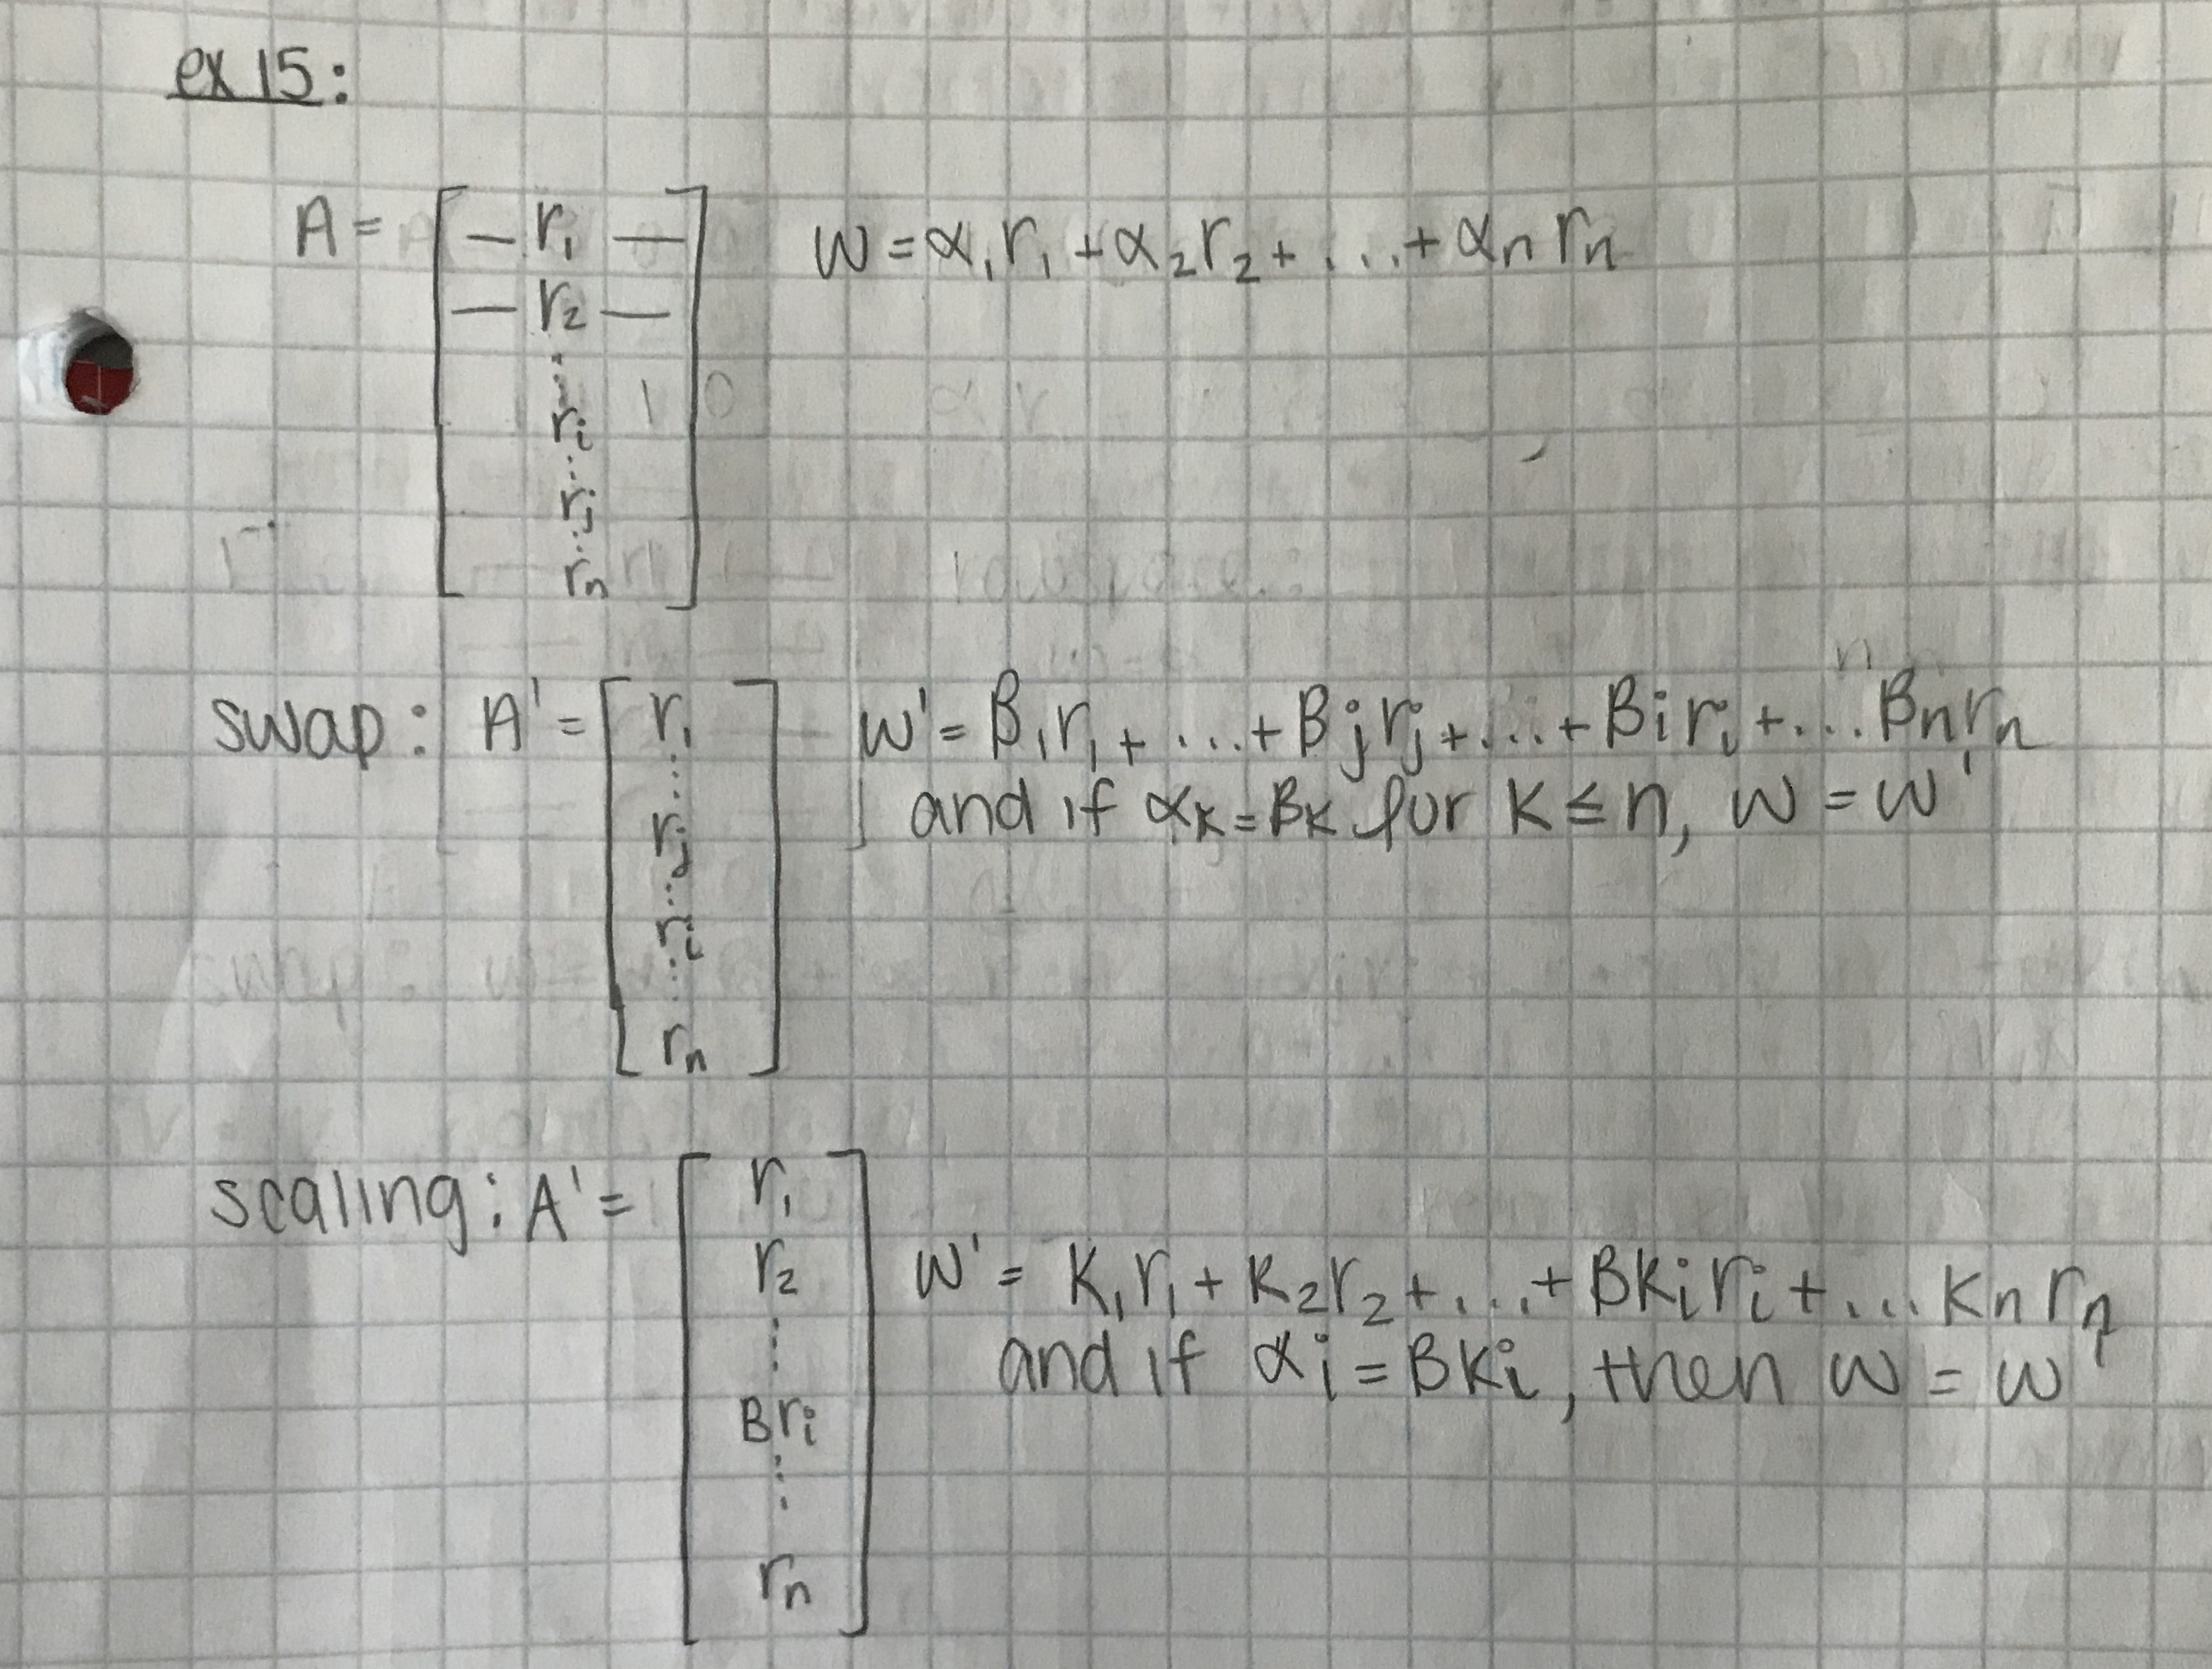 ex 15:
A = [ — r₁ —
— r₂ —
⋮
rᵢ
⋮
rⱼ
⋮
rₙ ]
w = α₁r₁ + α₂r₂ + ... + αₙrₙ
swap: A' = [ r₁
⋮
rⱼ
⋮
rᵢ
⋮
rₙ ]
w' = β₁r₁ + ... + βⱼrⱼ + ... + βᵢrᵢ + ... βₙrₙ
and if αₖ = βₖ for k ≤ n, w = w'
scaling: A' = [ r₁
r₂
⋮
βrᵢ
⋮
rₙ ]
w' = k₁r₁ + k₂r₂ + ... + βkᵢrᵢ + ... kₙrₙ
and if αᵢ = βkᵢ, then w = w'